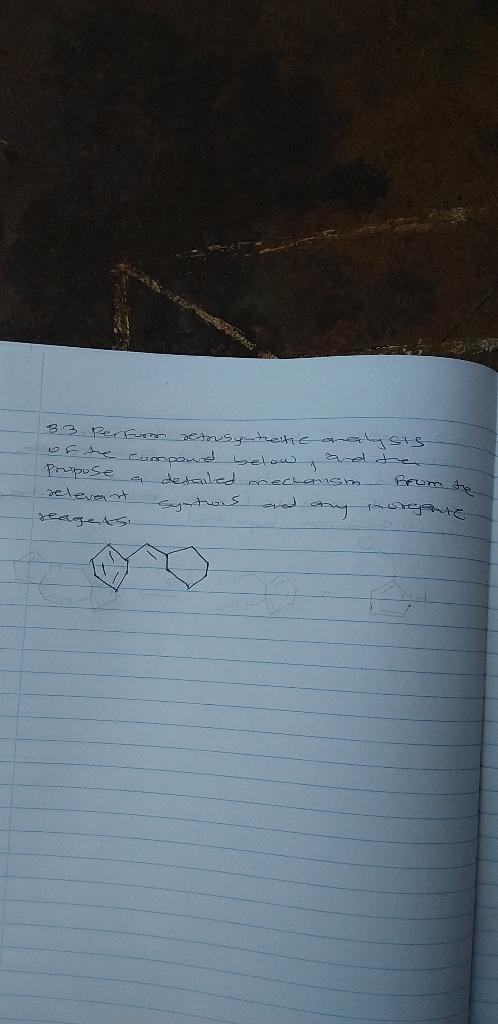 3.3. Perform retrosynthetic analysis
of the compound below, and then
Propose a detailed mechanism from the
relevant synthons and any inorganic
reagents.